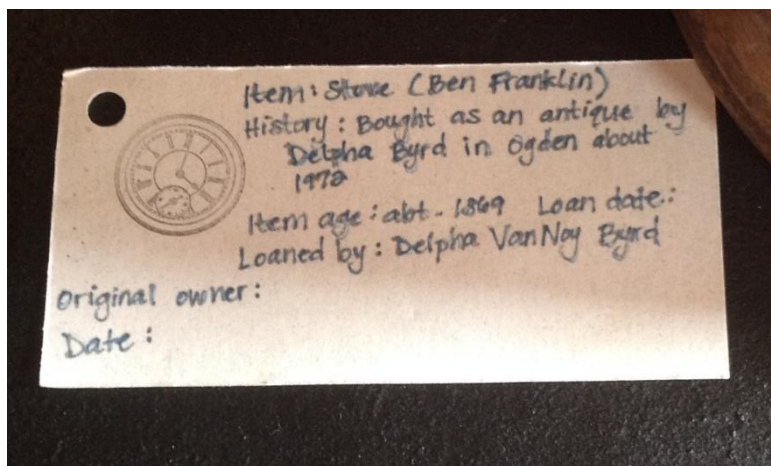 Item: Stove (Ben Franklin)
History: Bought as an antique by
Delpha Byrd in Ogden about
1972
Item age: abt. 1869 Loan date:
Loaned by: Delpha VanNoy Byrd
Original owner:
Date: